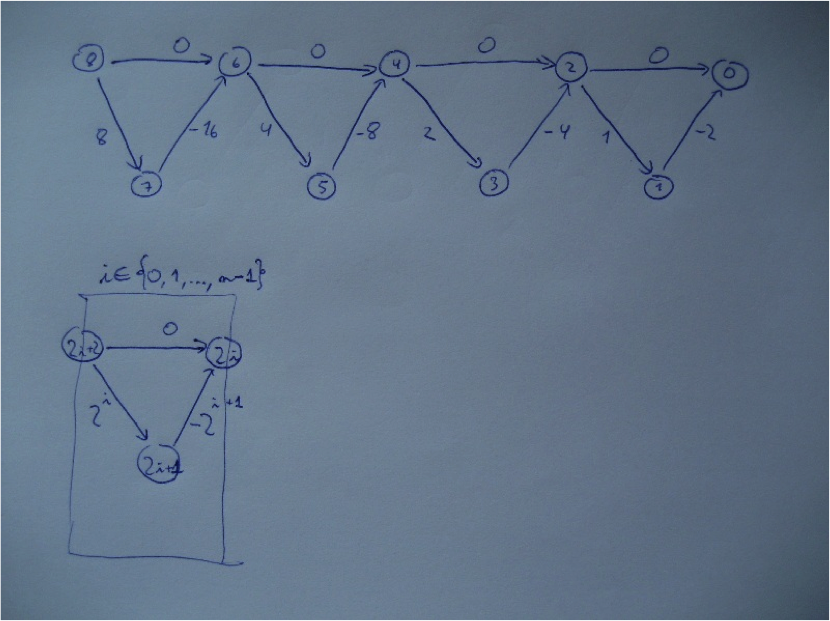 0 0 0 0
8 6 4 2 0
8 -16 4 -8 2 -4 1 -2
7 5 3 1
i∈{0,1,...,n-1}
0
2i+2 2i
2^i -2^{i+1}
2i+1